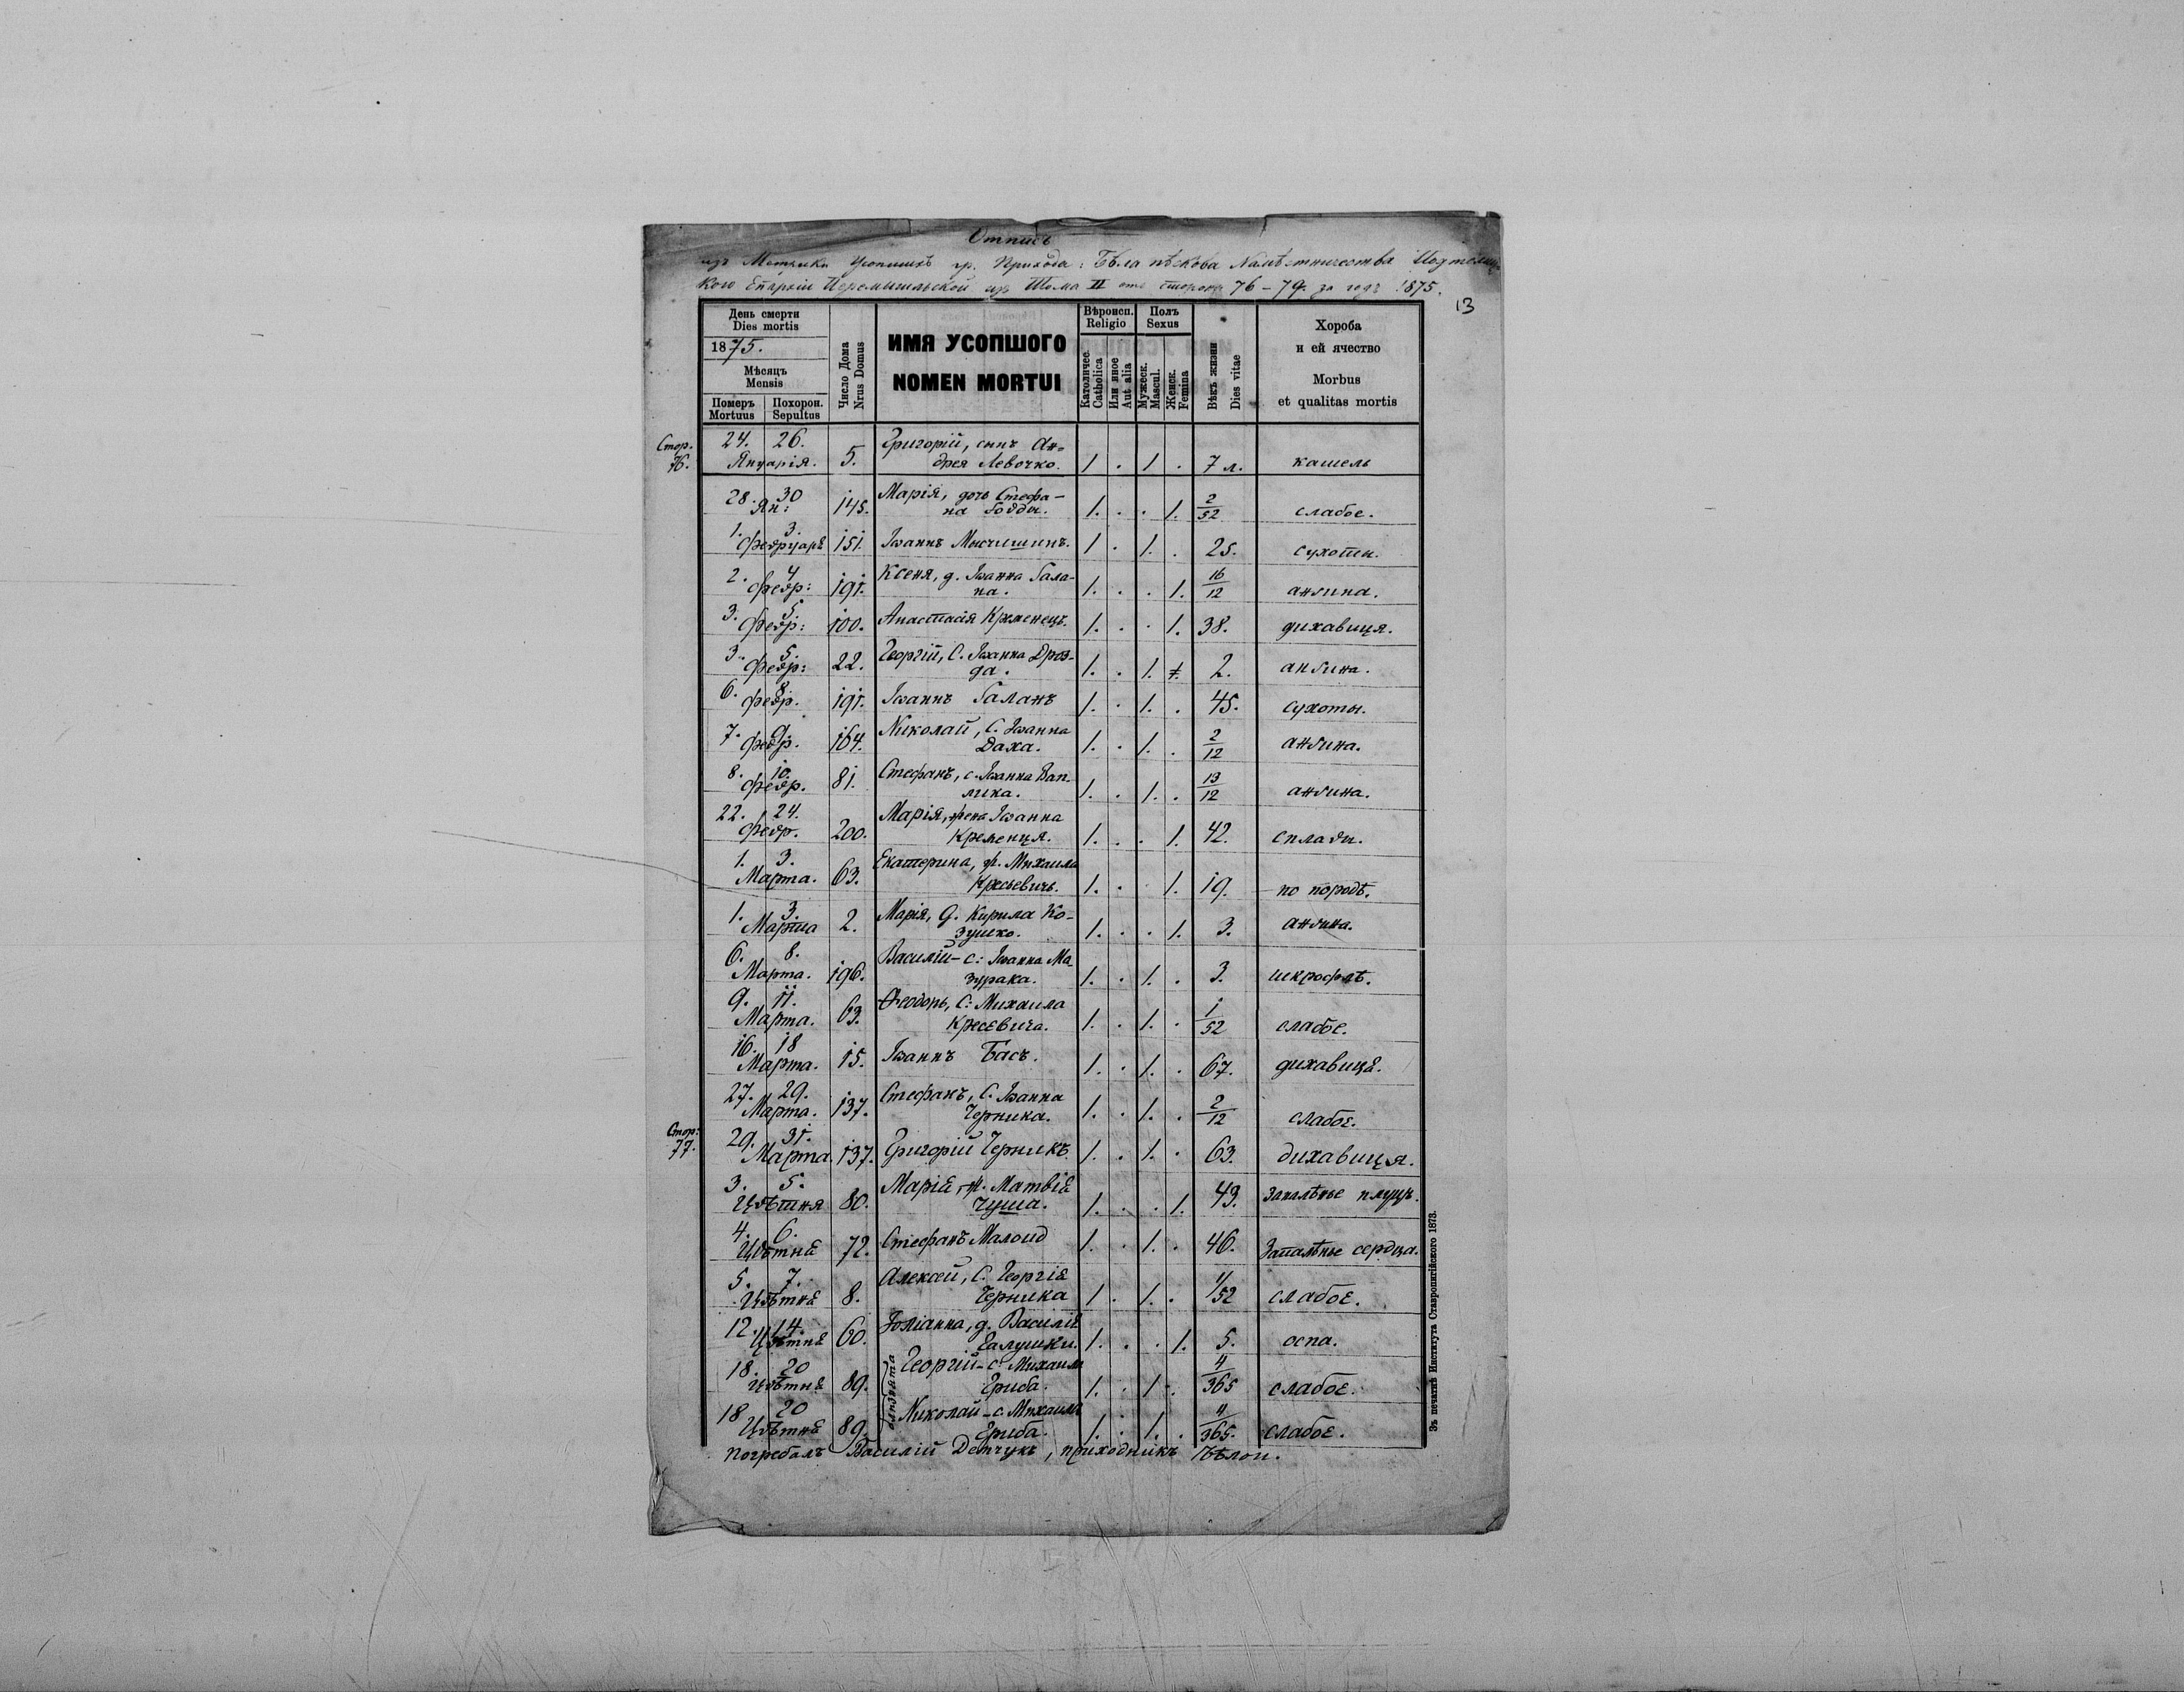 Отпись
изъ Метрики Усопшихъ гр. Прихода: Бѣла Намѣстничества
кого Епархіи Перемышльской изъ Тома II отъ стороны 76-79. за годъ 1875.
13
День смерти
Dies mortis
1875.
Мѣсяцъ
Mensis
Померъ
Mortuus
Похорон.
Sepultus
Число Дома
Nrus Domus
ИМЯ УСОПШОГО
NOMEN MORTUI
Вѣроисп.
Religio
Католичес.
Catholica
Или иное
Aut alia
Полъ
Sexus
Мужеск.
Mascul.
Женск.
Femina
Вѣкъ жизни
Dies vitae
Хороба
и ей ячество
Morbus
et qualitas mortis
Стор. 76.
24. 26. Януарія. 5. Григорій, сынъ Ан=
дрея Левочко. 1 . 1 . 7 л. кашель
28. 30 Ян: 145. Марія, дочь Стефа-
на 1. . . 1. 2/52 слабое.
1. 3. Февруарѣ 151. Іоаннъ 1 . 1. . 25. сухоты.
2. 4 Февр: 191. Ксеня, д. Іоанна Гала-
на. 1. . . 1. 16/12 ангина.
3. 5. Февр: 100. Анастасія Кременець. 1. . . 1. 38. дихавиця.
3. 5. Февр: 22. Георгій, С. Іоанна Дроз-
да. 1. . 1. 2. ангина.
6. 8. Февр. 191. Іоаннъ Галанъ 1. . 1. . 45. сухоты.
7. 9. Февр. 164. Николай, С. Іоанна
Даха. 1. . 1. . 2/12 ангина.
8. 10. Февр. 81. Стефанъ, с. Іоанна
1. . 1. . 13/12 ангина.
22. 24. Февр. 200. Марія, жена Іоанна
Кременця. 1. . . 1. 42.
1. 3. Марта. 63. Екатерина, ж. Михаила
Кресевичъ. 1. . 1. 19. по породѣ.
1. 3. Марта 2. Марія, д. Кирила Ко-
зушко. 1. . . 1. 3. ангина.
6. 8. Марта. 196. Василій - с: Іоанна Ма
зурака. 1. . 1. . 3. шкрофлѣ.
9. 11. Марта. 63. Феодоръ, С: Михаила
Кресевича. 1. . 1. . 1/52 слабое.
16. 18 Марта. 15. Іоаннъ Басъ. 1. . 1. . 67. дихавицѣ.
27. 29. Марта. 137. Стефанъ, С. Іоанна
Черника. 1. . 1. . 2/12 слабое.
Стор: 77.
29. 31. Марта. 137. Григорій Черникъ 1. . 1. . 63. дихавиця.
3. 5. Цвѣтня 80. Марія, ж. Матвія
Чуша. 1. . . 1. 49. Запалѣнье плуцъ.
4. 6. Цвѣтня 72. Стефанъ 1. . 1. . 46. Запалѣнье сердца.
5. 7. Цвѣтня 8. Алексей, С. Георгія
Черника 1 . 1. . 1/52 слабое.
12. 14. Цвѣтня 60. Юліанна, д. Василія
Галушки. 1. . . 1. 5. оспа.
близнята
18. 20 Цвѣтня 89. Георгій - с. Михаила
Гриба. 1. . 1 . 4/365 слабое.
18 20 Цвѣтня 89. Николай - с. Михаила
Гриба. 1. . 1. . 4/365. слабое.
Погребалъ Василій Демчукъ, приходникъ Бѣлои.
Зъ печатнѣ Института Ставропигійского 1873.